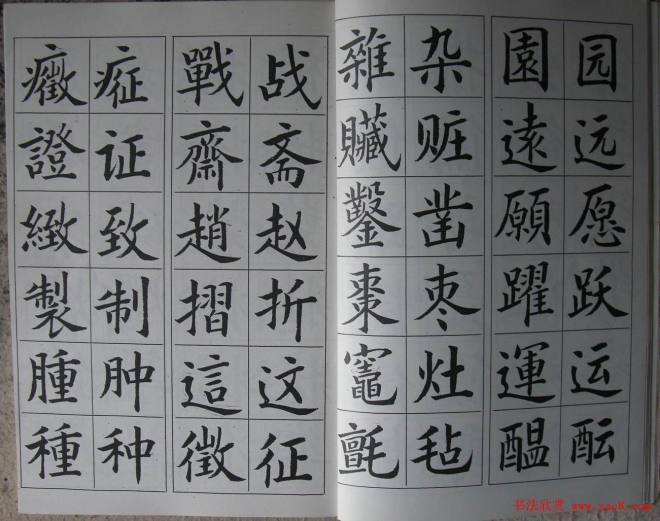 园远愿跃运酝
園遠願躍運醖
杂赃凿枣灶毡
雜贜鑿棗竈氈
战斋赵折这征
戰齋趙摺這徵
症证致制肿种
癥證緻製腫種
书法欣赏 www.yac8.com